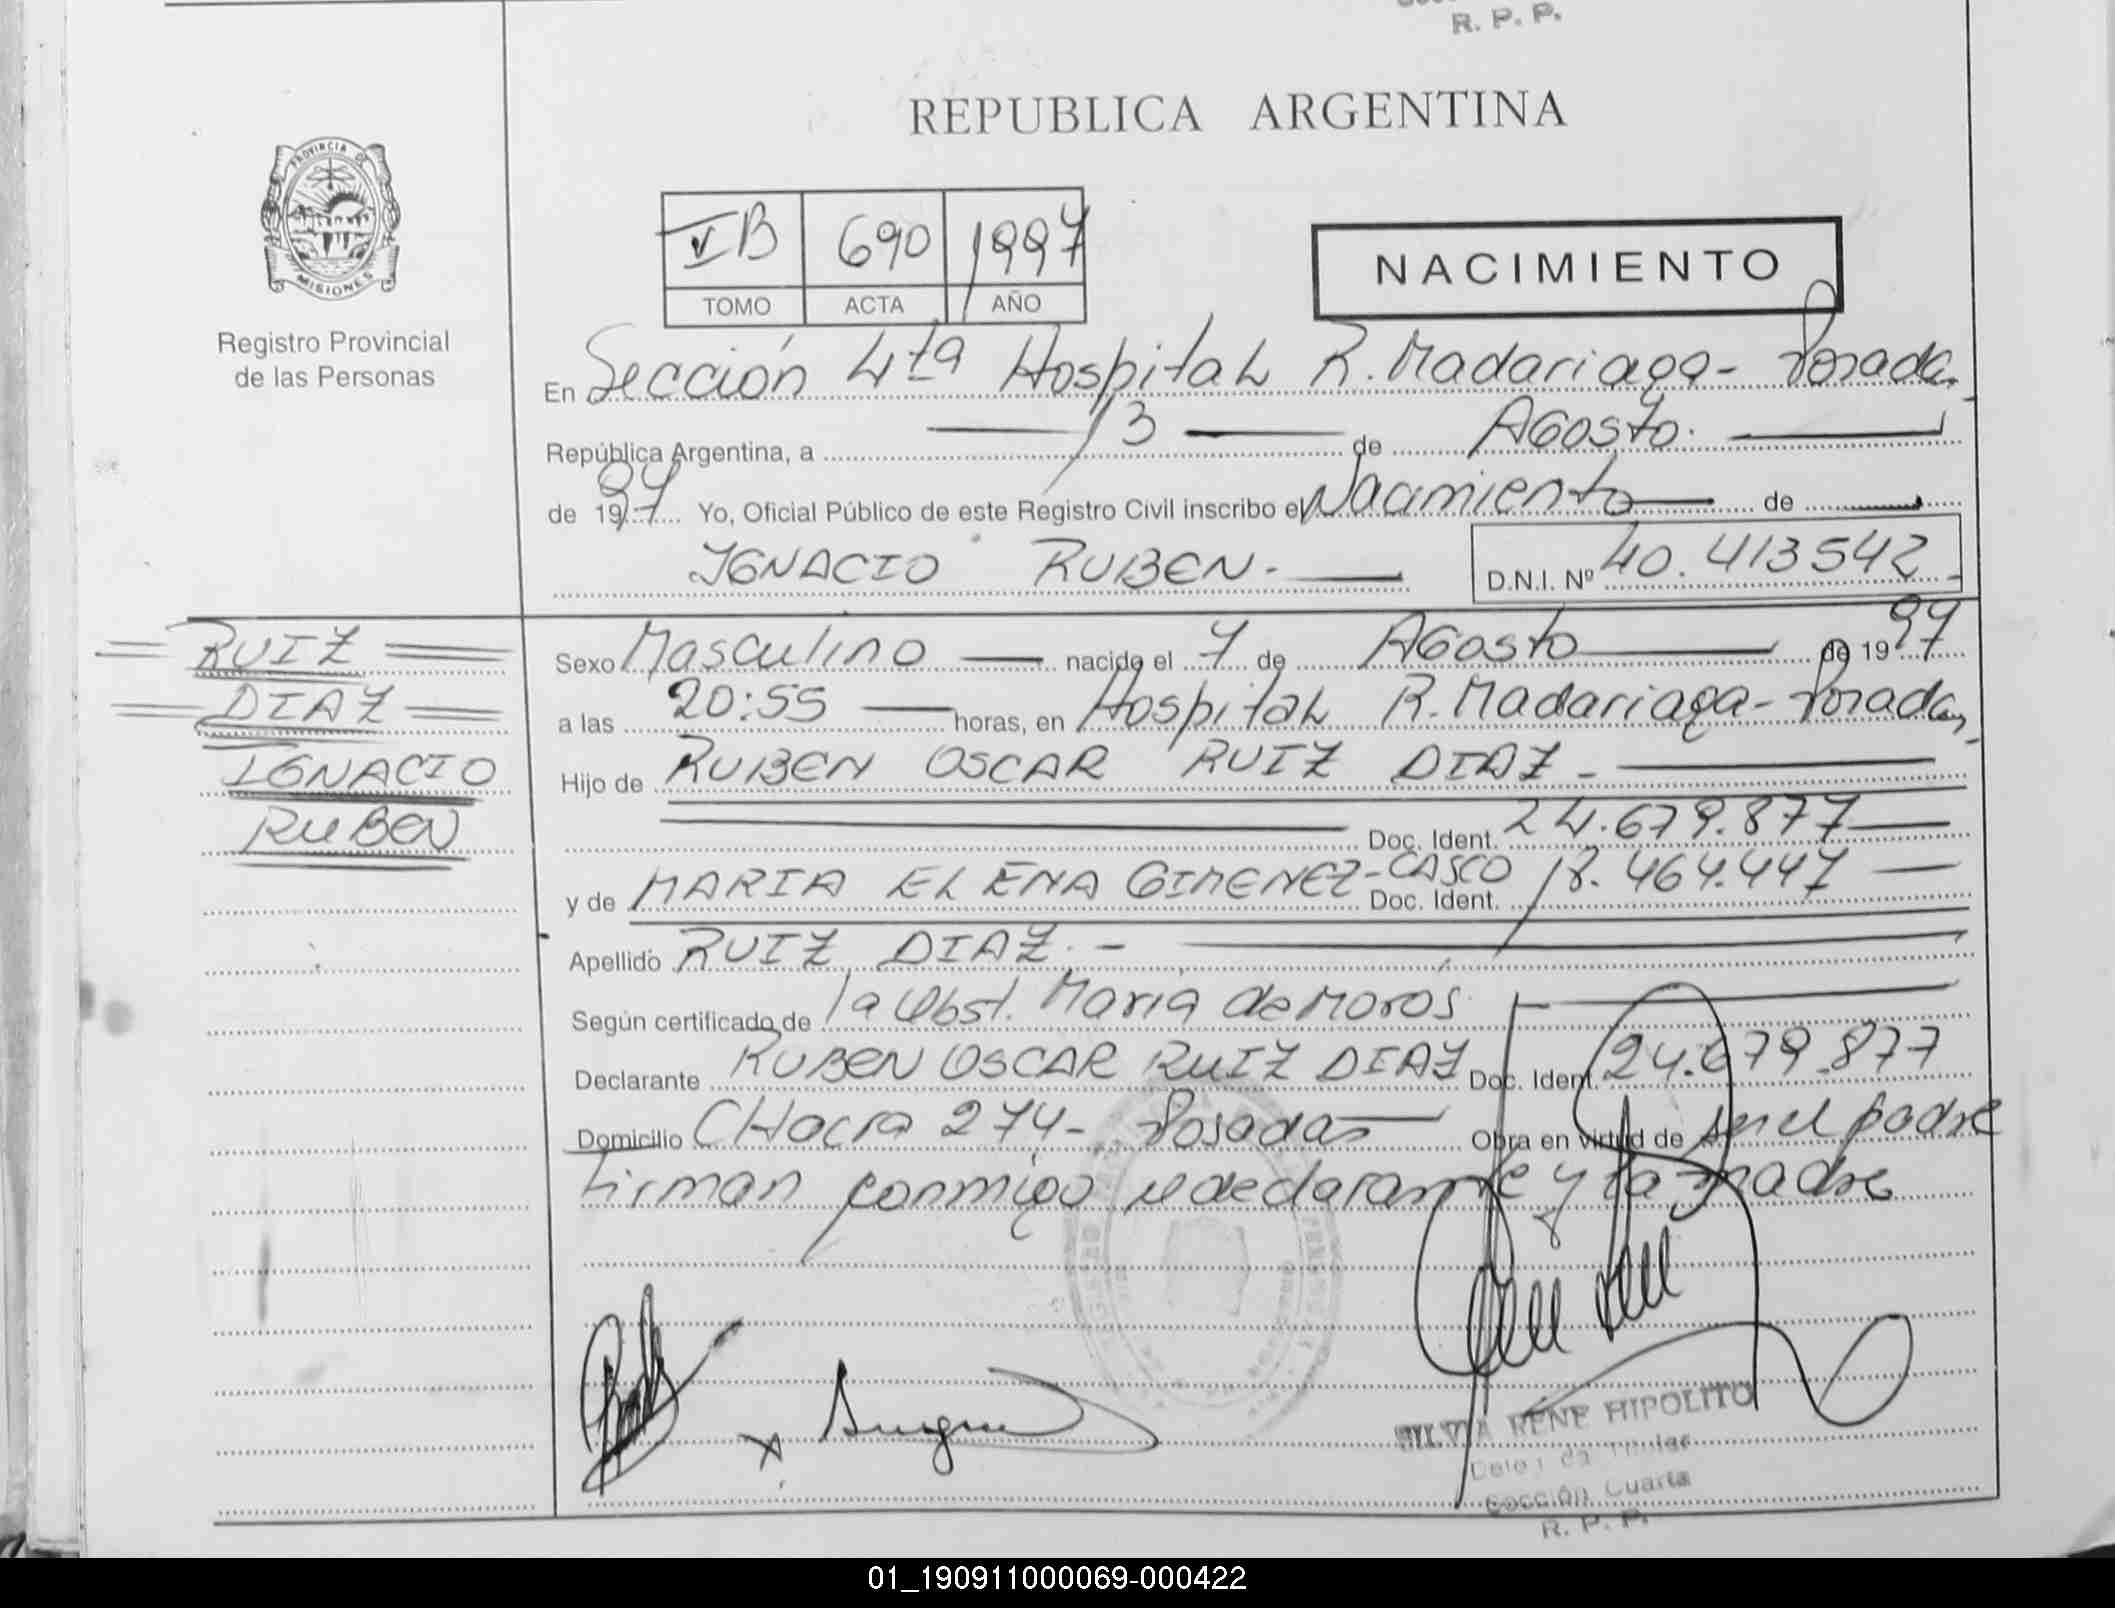 R. P. P.
REPUBLICA ARGENTINA
PROVINCIA DE
MISIONES
Registro Provincial
de las Personas
VB 690 1997
TOMO ACTA AÑO
NACIMIENTO
En Sección 4ta Hospital R. Madariaga - Posadas
República Argentina, a 13 de Agosto.
de 1997 Yo, Oficial Público de este Registro Civil inscribo el Nacimiento de
IGNACIO RUBEN.- D.N.I. Nº 40.413542
RUIZ
DIAZ
IGNACIO
RUBEN
Sexo Masculino nacido el 7 de Agosto de 1997
a las 20:55 horas, en Hospital R. Madariaga - Posadas
Hijo de RUBEN OSCAR RUIZ DIAZ -
Doc. Ident. 24.679.877
y de MARIA ELENA GIMENEZ-CASCO Doc. Ident. 18.464.447
Apellido RUIZ DIAZ.-
Según certificado de la Obst. Maria de Moros
Declarante RUBEN OSCAR RUIZ DIAZ Doc. Ident. 24.679.877
Domicilio CHacra 274- Posadas Obra en virtud de ser el padre
firman conmigo el declarante y la madre
x
SILVIA RENE HIPOLITO
Titular
Sección Cuarta
R. P. P.
01_190911000069-000422